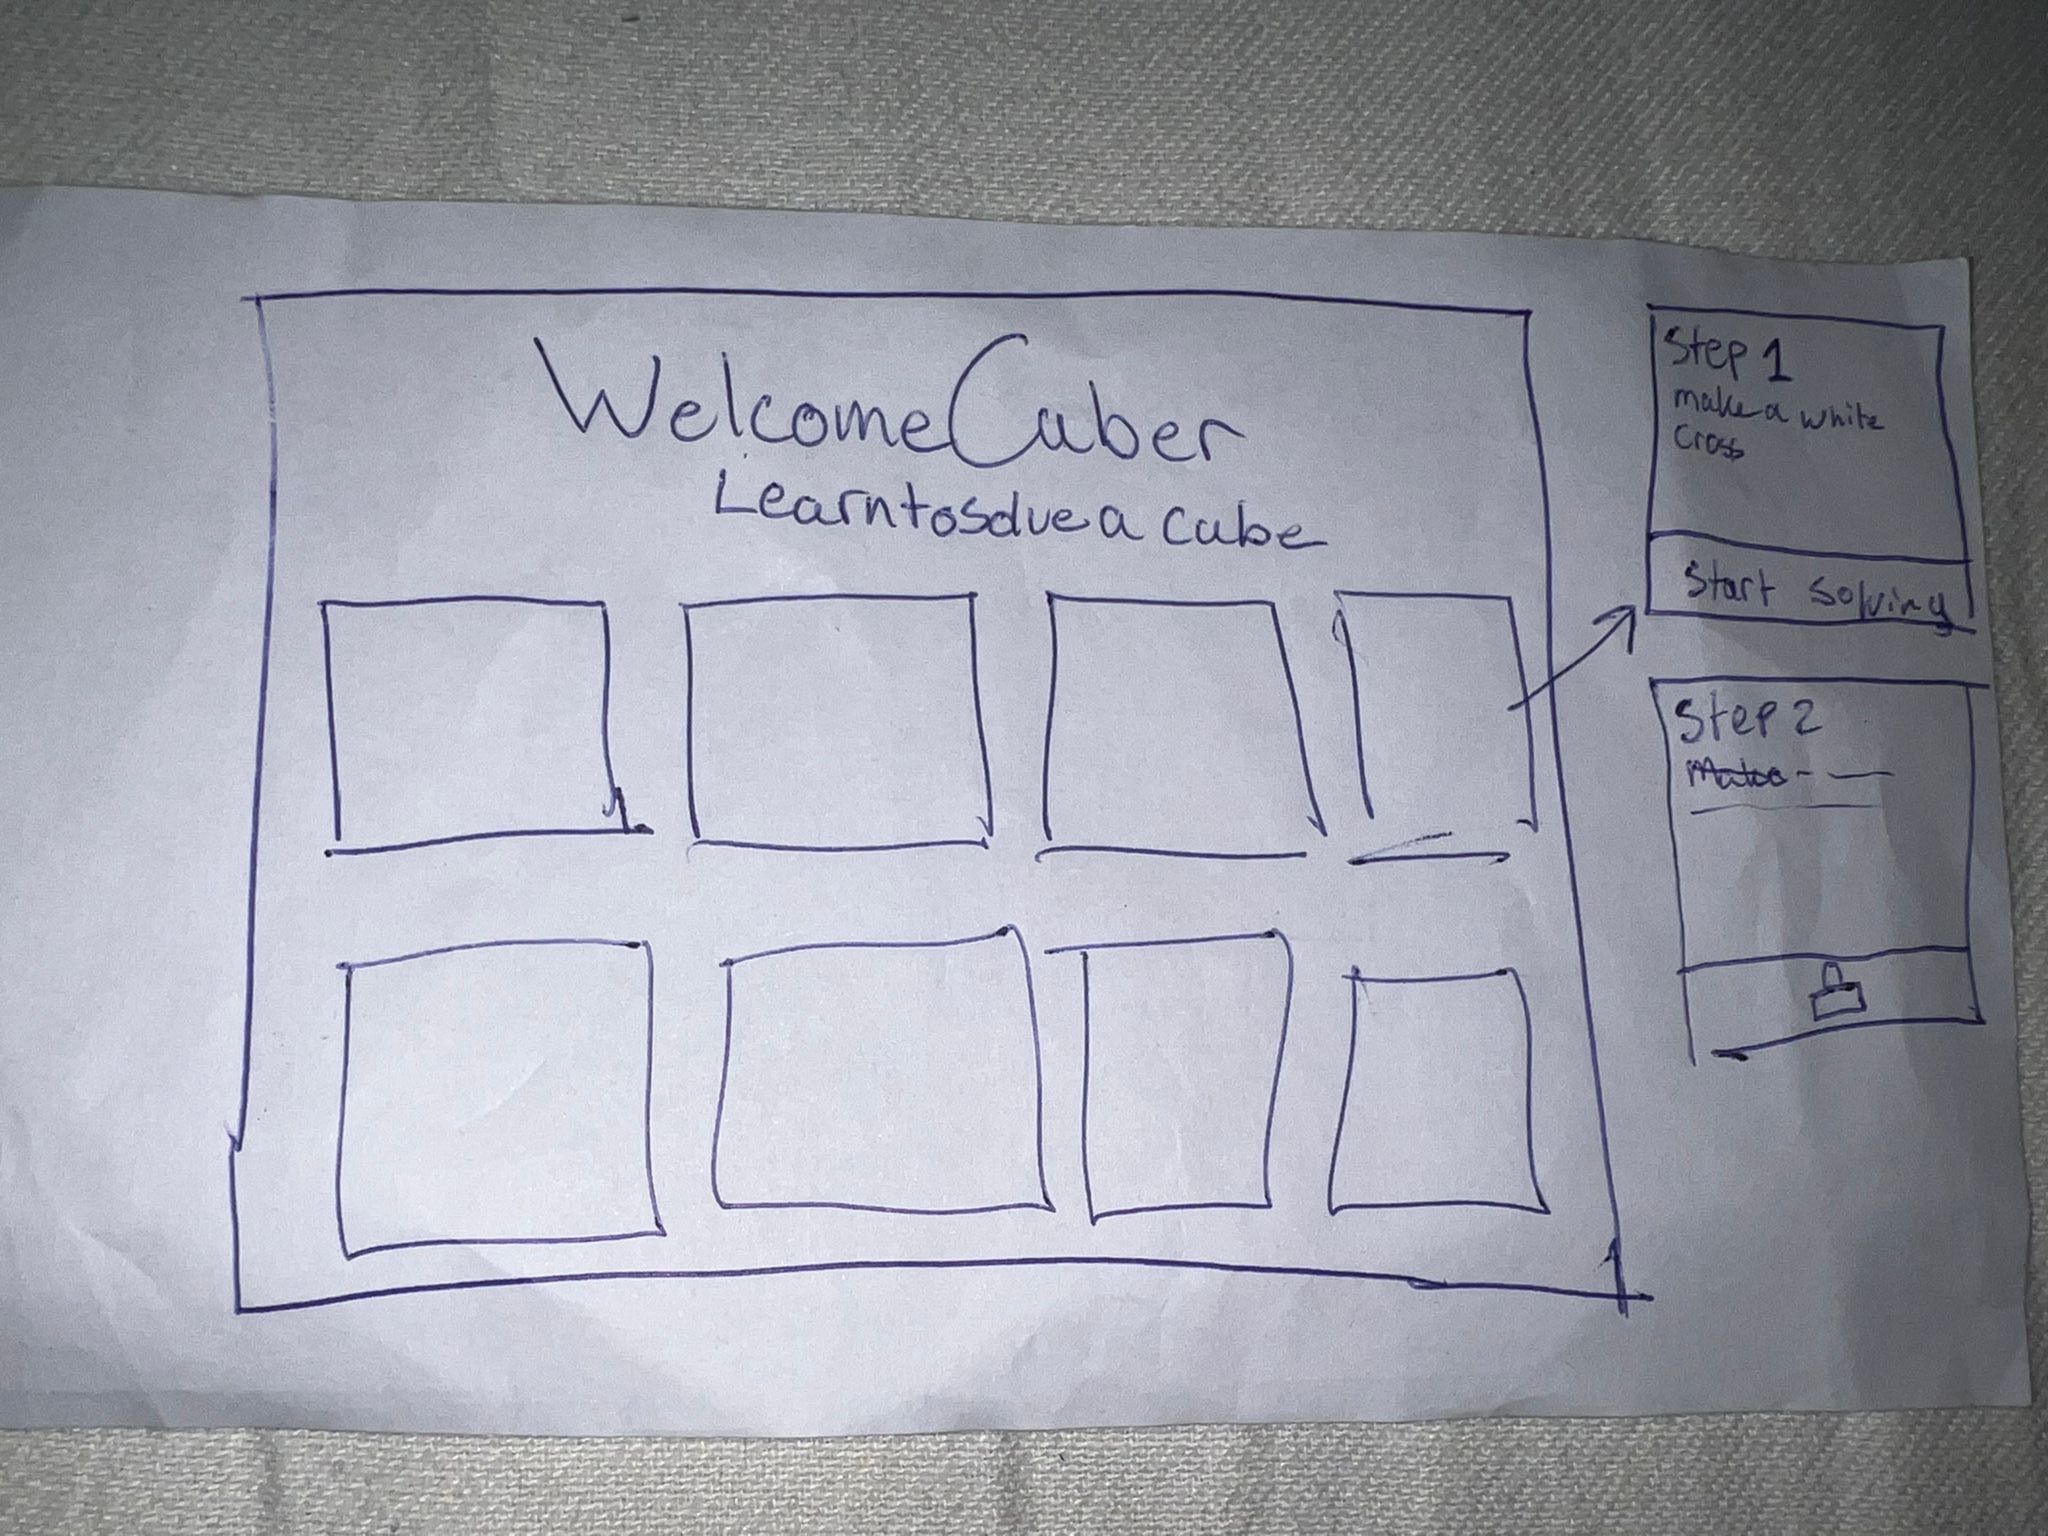 Welcome Cuber
Learn to solve a cube
Step 1
make a white
cross
Start solving
Step 2